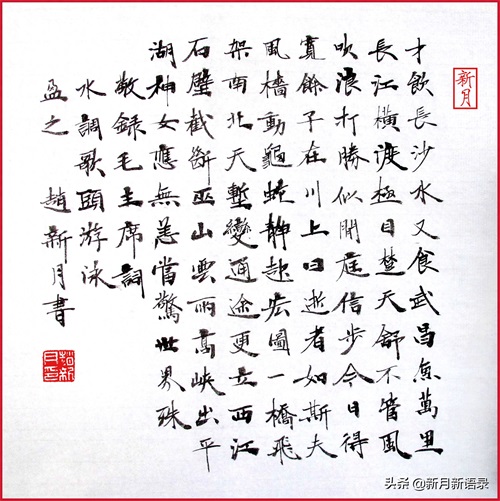 新月
才飲長沙水又食武昌魚萬里
長江橫渡極目楚天舒不管風
吹浪打勝似閒庭信步今日得
寬餘子在川上曰逝者如斯夫
風檣動龜蛇靜起宏圖一橋飛
架南北天塹變通途更立西江
石壁截斷巫山雲雨高峽出平
湖神女應無恙當驚世界殊
敬録毛主席詞
水調歌頭游泳
盈之 趙新月書
趙新月印
头条 @新月新语录